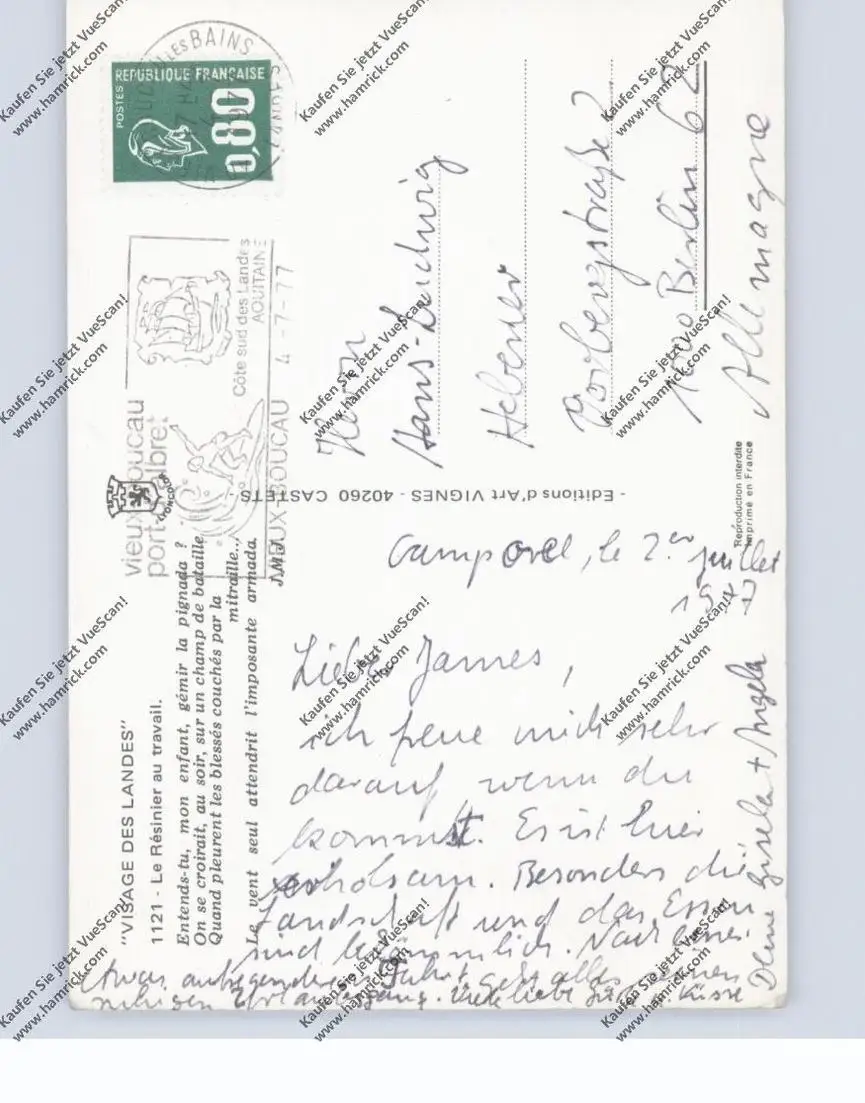 LES BAINS
POSTES
REPUBLIQUE FRANÇAISE
0,80
vieux-boucau
port d'albret
Côte sud des Landes
AQUITAINE
VIEUX-BOUCAU 4-7-77
LYONCOLOR
"VISAGE DES LANDES"
1121 - Le Résinier au travail.
Entends-tu, mon enfant, gémir la pignada ?
On se croirait, au soir, sur un champ de bataille
Quand pleurent les blessés couchés par la
mitraille...
Le vent seul attendrit l'imposante armada.
- Editions d'Art VIGNES - 40260 CASTETS -
Reproduction interdite
Imprimé en France
Herrn
Hans-Ludwig
Hebener
Vorbergstraße 2
1000 Berlin 62
Allemagne
le 2er juillet
1977
Lieber James,
ich freue mich sehr
darauf wenn du
kommst. Es ist hier
erholsam. Besonders die
Landschaft und das Essen
sind bekömmlich. Nach einer
etwas aufregenden Fahrt geht alles seinen
ruhigen Viele liebe Grüße + Küsse
Deine Gisela + Angela
Kaufen Sie jetzt VueScan!
www.hamrick.com